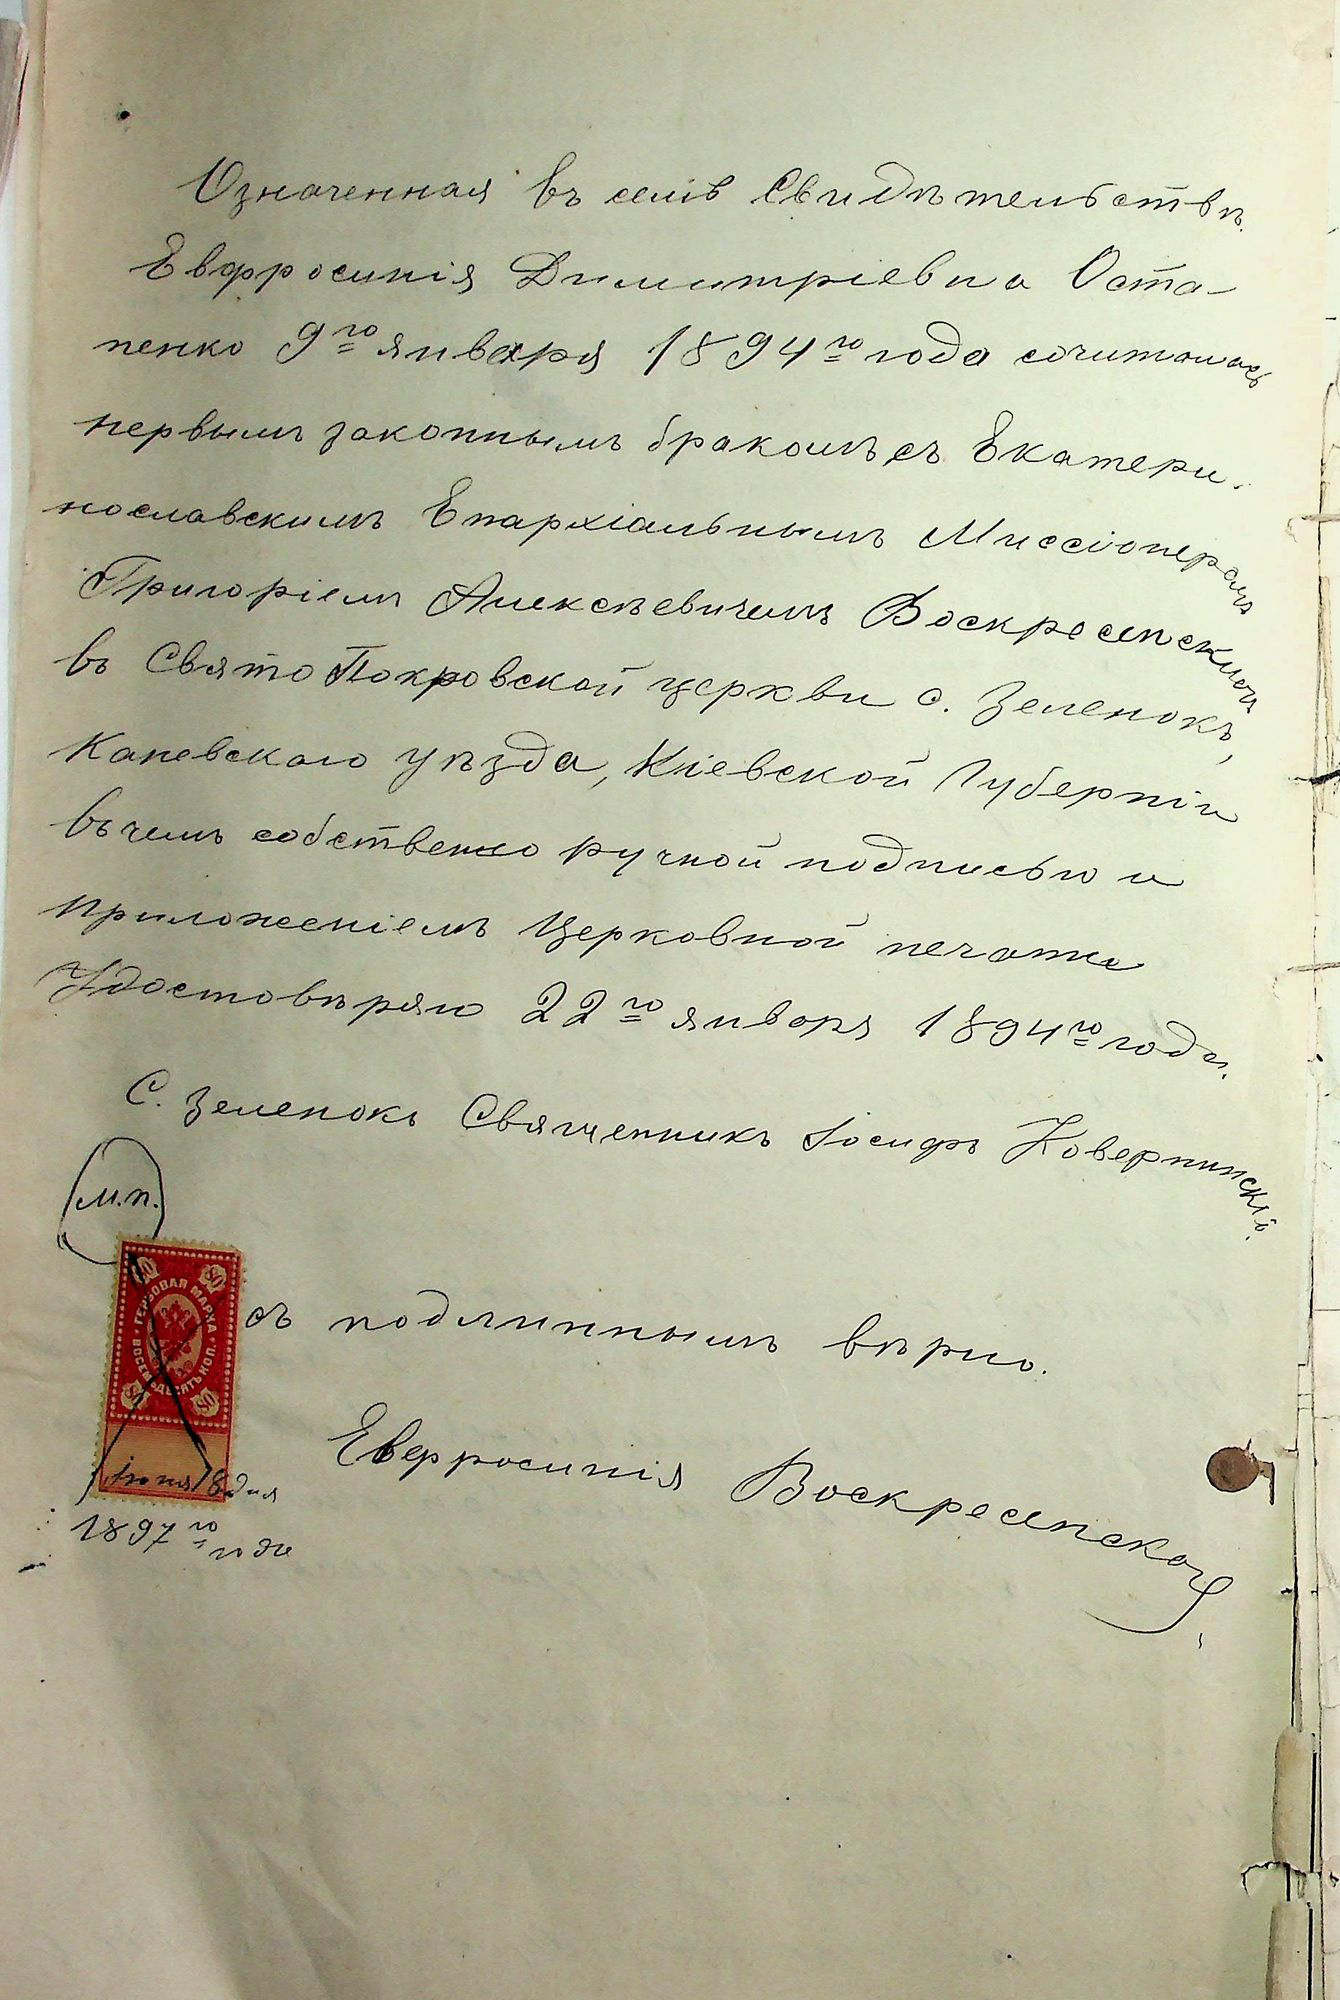 Означенная въ семъ Свидѣтельствѣ
Евфросинія Димитріевна Оста-
пенко 9го января 1894го года сочиталась
первымъ законнымъ бракомъ съ Екатери-
нославскимъ Епархіальнымъ Миссіонеромъ
Григоріемъ Алексѣевичемъ Воскресенскимъ
въ Свято Покровской церкви с. Зеленокъ,
Каневскаго уѣзда, Кіевской Губерніи
въ чемъ собственно ручной подписью и
приложеніемъ Церковной печати
Удостовѣряю 22го января 1894го года.
С. Зеленокъ Священникъ Іосифъ Ковернинскій.
М.п.
ГЕРБОВАЯ МАРКА
ВОСЕМЬДЕСЯТЪ КОП.
80 80
80 80
съ подлиннымъ вѣрно.
Евфросинія Воскресенская.
Іюня 8 дня
1897го года